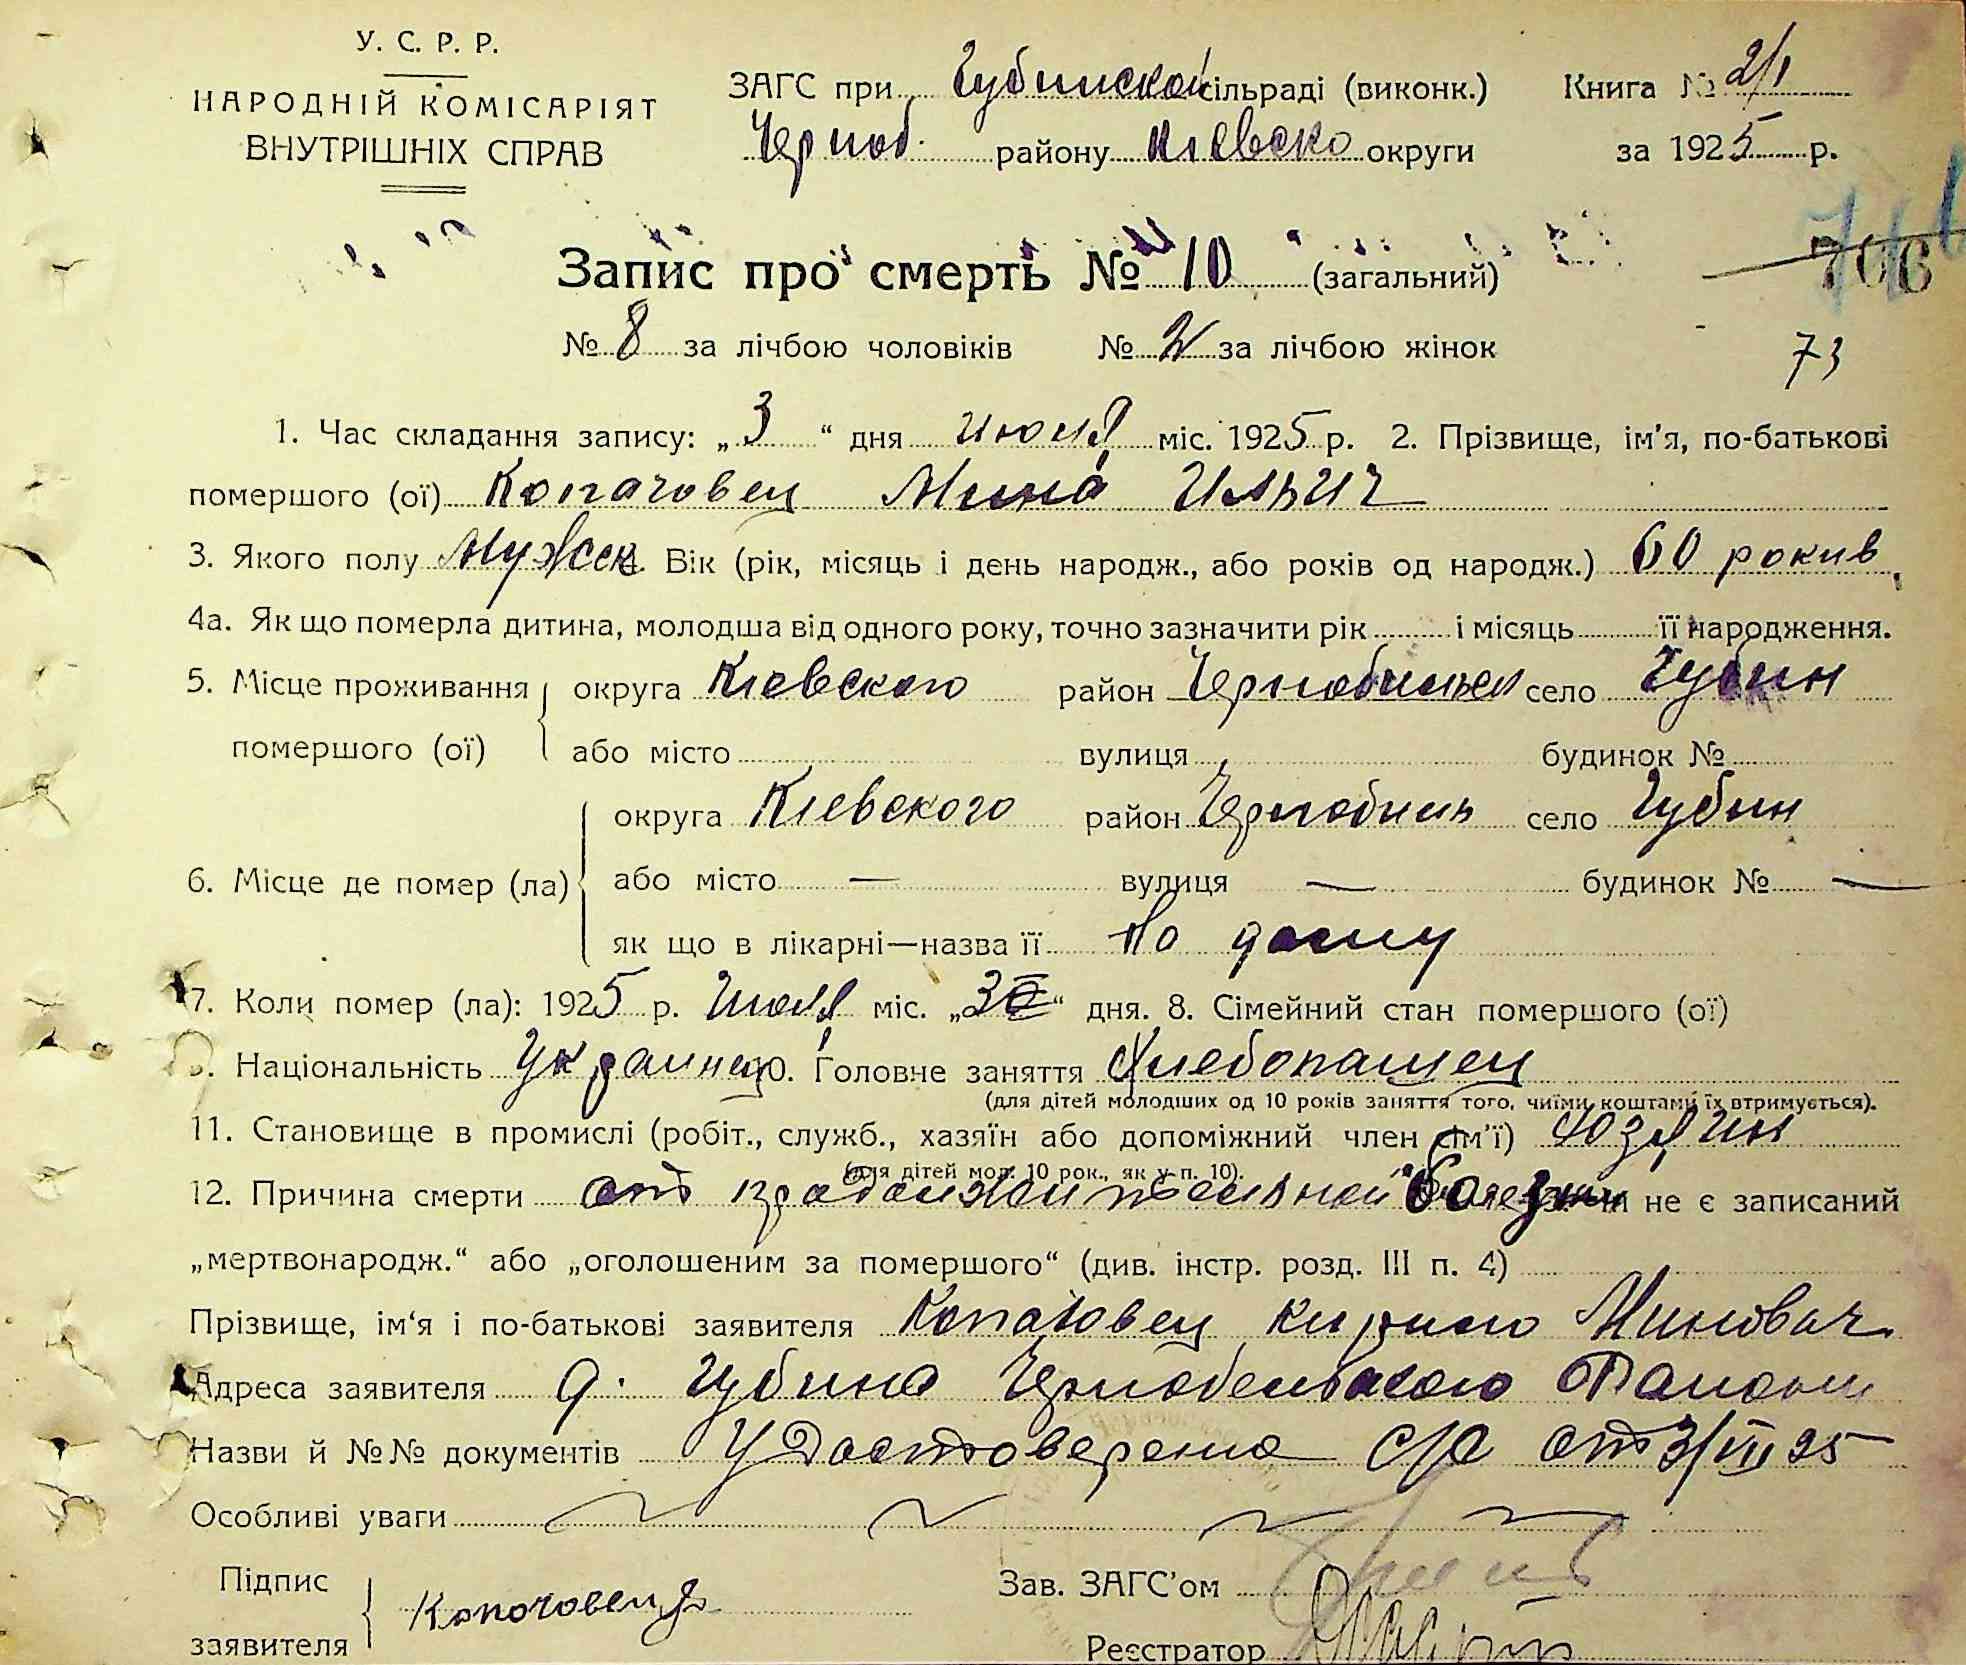 У. С. Р. Р.
НАРОДНІЙ КОМІСАРІЯТ
ВНУТРІШНІХ СПРАВ
ЗАГС при Губинской сільраді (виконк.) Книга № 2/1
Черноб. району Киевско округи за 1925 р.
Запис про смерть № 10 (загальний)
706
№ 8 за лічбою чоловіків № 2 за лічбою жінок
73
1. Час складання запису: „3“ дня июля міс. 1925 р. 2. Прізвище, ім'я, по-батькові
помершого (ої) Копачовец Мина Ильич
3. Якого полу Мужск. Вік (рік, місяць і день народж., або років од народж.) 60 рокив
4а. Як що померла дитина, молодша від одного року, точно зазначити рік і місяць її народження.
5. Місце проживання помершого (ої) округа Киевского район Чернобильск село Губин
або місто вулиця будинок №
6. Місце де помер (ла) округа Киевского район Чернобиль село Губин
або місто — вулиця — будинок № —
як що в лікарні—назва її по дому
7. Коли помер (ла): 1925 р. Июля міс. „3“ дня. 8. Сімейний стан помершого (ої)
9. Національність Украинец 10. Головне заняття Хлебопашец
(для дітей молодших од 10 років заняття того, чиїми коштами їх втримується).
11. Становище в промислі (робіт., служб., хазяїн або допоміжний член сім'ї) Хозяин
(для дітей мол. 10 рок., як у п. 10).
12. Причина смерти от продолжительной болезни не є записаний
„мертвонародж.“ або „оголошеним за помершого“ (див. інстр. розд. III п. 4)
Прізвище, ім'я і по-батькові заявителя Копачовец Кирило Минович
Адреса заявителя д. Губина Чернобельского
Назви й №№ документів Удостоверена с/с от 3/VII 25
Особливі уваги
Підпис заявителя Копочовец
Зав. ЗАГС'ом
Реєстратор